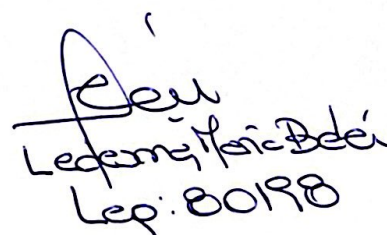 Belén
Ledesma, María Belén
Leg: 80198